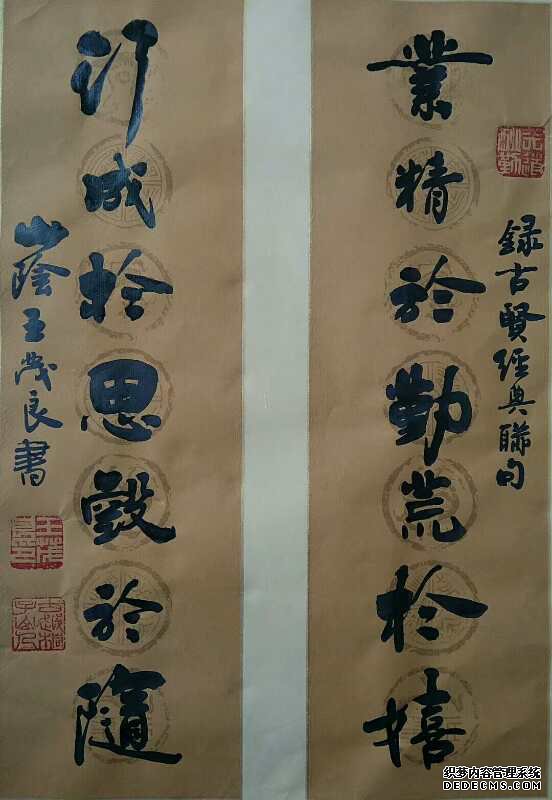 天道酬勤
録古賢經典聯句
業精於勤荒於嬉
行成於思毀於隨
山蔭王茂良書
织梦内容管理系统
DEDECMS.COM